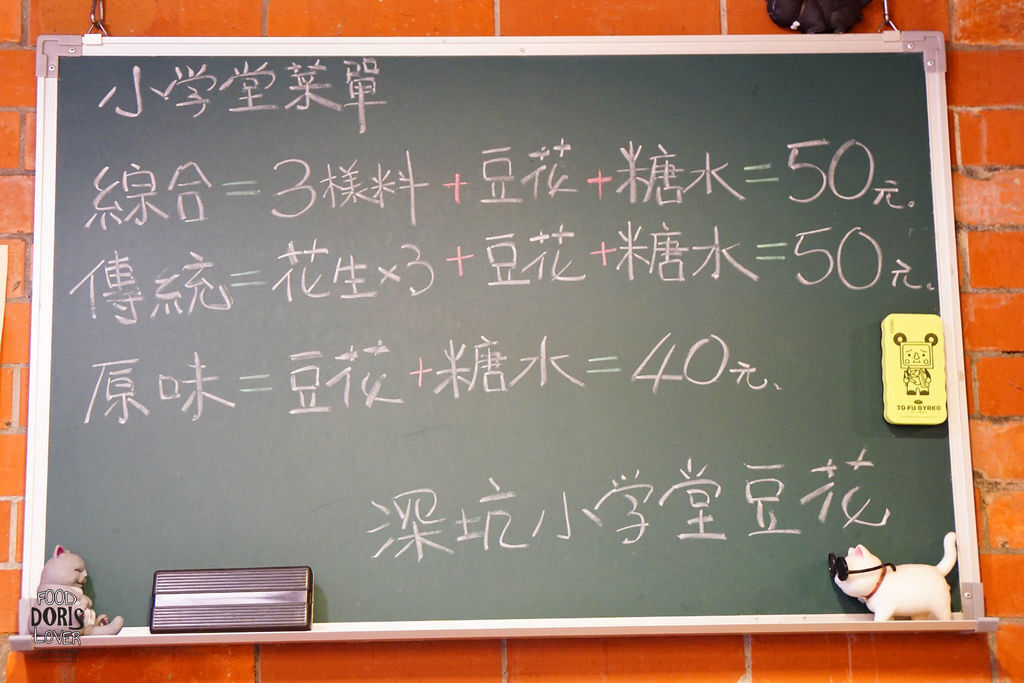 小学堂菜單
綜合=3樣料+豆花+糖水=50元.
傳統=花生×3+豆花+糖水=50元.
原味=豆花+糖水=40元、
深坑小学堂豆花
TO-FU OYAKO
FOOD
DORIS
LOVER